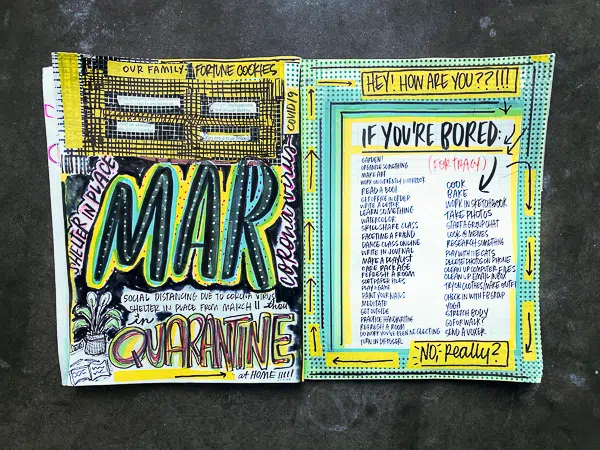 OUR FAMILY FORTUNE COOKIES
COVID19
SHELTER IN PLACE
MAR
corona virus
SOCIAL DISTANCING DUE TO CORONA VIRUS
SHELTER IN PLACE FROM MARCH 11
in
QUARANTINE
at HOME !!!!!
HEY! HOW ARE YOU??!!!
IF YOU'RE BORED:
(FOR TRACY)
GARDEN!
ORGANIZE SOMETHING
MAKE ART
READ A BOOK
WRITE A LETTER
LEARN SOMETHING
WATERCOLOR
SKILLSHARE CLASS
FACETIME A FRIEND
DANCE CLASS ONLINE
WRITE IN JOURNAL
MAKE A PLAYLIST
CARE PACKAGE
REFRESH A ROOM
SORT PAPER FILES
PLAY A GAME
PAINT YOUR NAILS
MEDITATE
GET OUTSIDE
PRACTICE HANDWRITING
REFRESH A ROOM
DO WHAT YOU'VE BEEN NEGLECTING
TURN ON DIFFUSER
COOK
BAKE
WORK IN SKETCHBOOK
TAKE PHOTOS
START A GROUP CHAT
LOOK @ MEMES
RESEARCH SOMETHING
PLAY WITH THE CATS
DELETE PHOTOS ON PHONE
CLEAN UP COMPUTER FILES
CLEAN UP EMAIL INBOX
TRY ON CLOTHES/MAKE OUTFITS
CHECK IN WITH FB GROUP
YOGA
STRETCH BODY
GO FOR WALK!
SEND A VOXER
NO, Really?